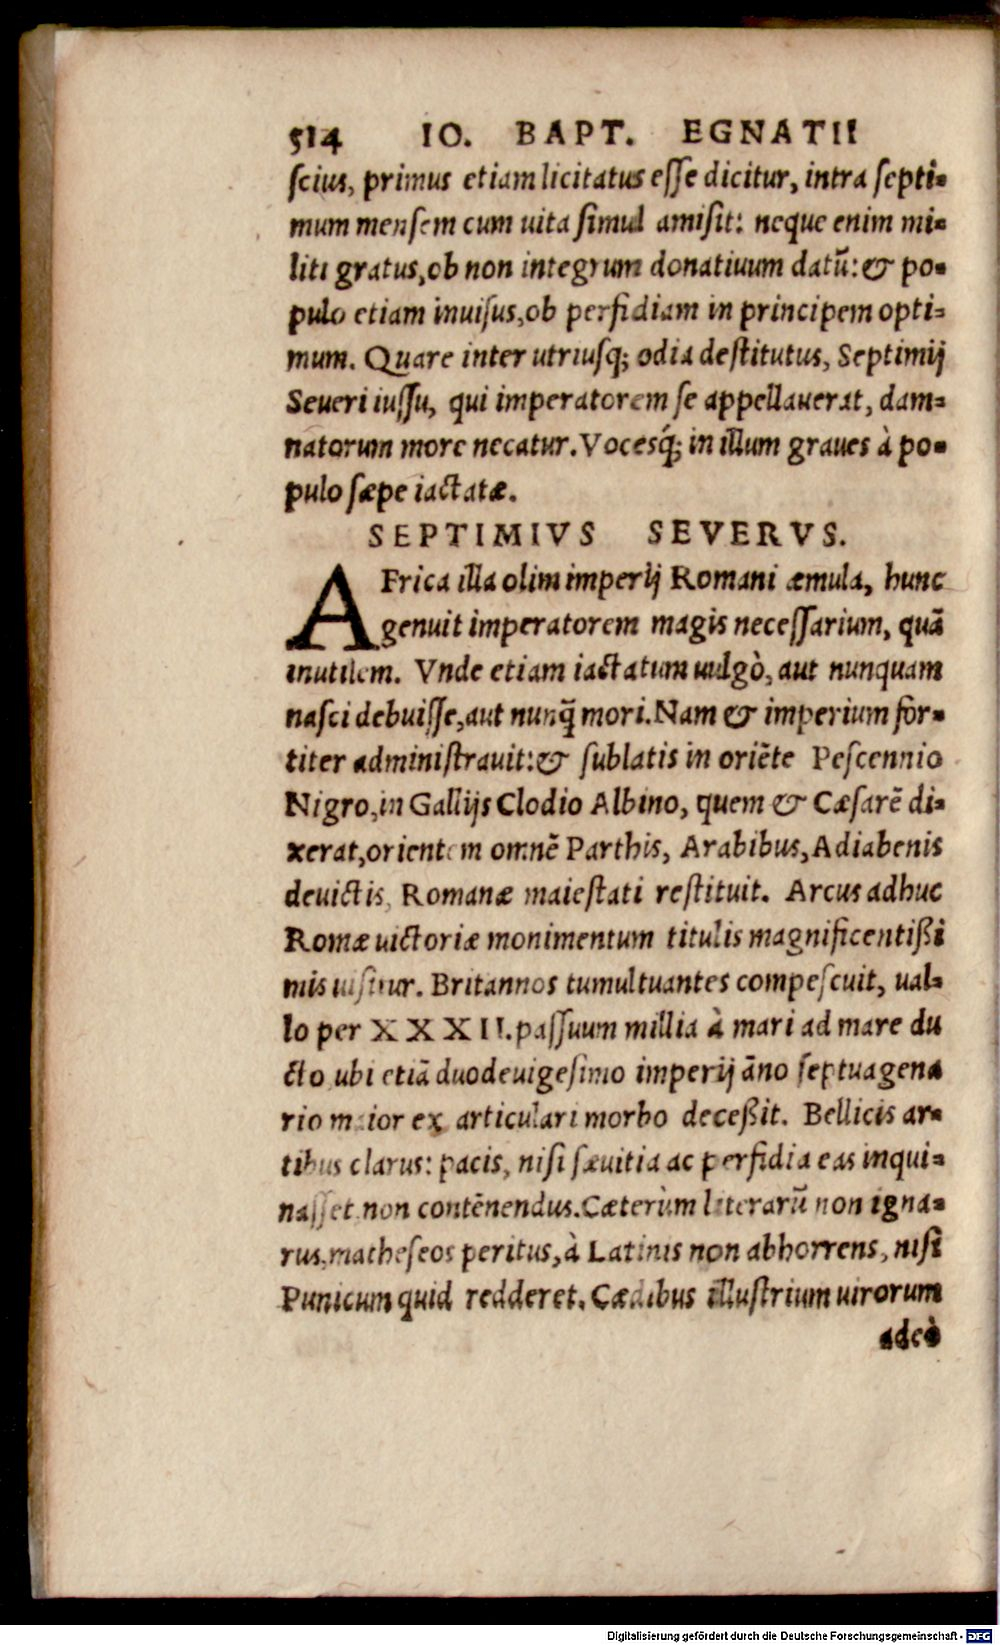 514 IO. BAPT. EGNATII
scius, primus etiam licitatus esse dicitur, intra septi-
mum mensem cum uita simul amisit: neque enim mi-
liti gratus, ob non integrum donatiuum datũ: & po-
pulo etiam inuisus, ob perfidiam in principem opti-
mum. Quare inter utriusq; odia destitutus, Septimij
Seueri iussu, qui imperatorem se appellauerat, dam-
natorum more necatur. Vocesq́; in illum graues à po-
pulo sæpe iactatæ.
SEPTIMIVS SEVERVS.
AFrica illa olim imperij Romani æmula, hunc
genuit imperatorem magis necessarium, quã
inutilem. Vnde etiam iactatum uulgò, aut nunquam
nasci debuisse, aut nunq̃ mori. Nam & imperium for-
titer administrauit: & sublatis in oriẽte Pescennio
Nigro, in Gallijs Clodio Albino, quem & Cæsarẽ di-
xerat, orientem omnẽ Parthis, Arabibus, Adiabenis
deuictis, Romanæ maiestati restituit. Arcus adhuc
Romæ uictoriæ monimentum titulis magnificentißi
mis uisitur. Britannos tumultuantes compescuit, ual-
lo per XXXII. passuum millia à mari ad mare du
cto ubi etiã duodeuigesimo imperij ãno septuagena
rio maior ex articulari morbo deceßit. Bellicis ar-
tibus clarus: pacis, nisi sæuitia ac perfidia eas inqui-
nasset, non contẽnendus. Cæterùm literarũ non igna-
rus, matheseos peritus, à Latinis non abhorrens, nisi
Punicum quid redderet. Cædibus illustrium uirorum
adeò
Digitalisierung gefördert durch die Deutsche Forschungsgemeinschaft - DFG